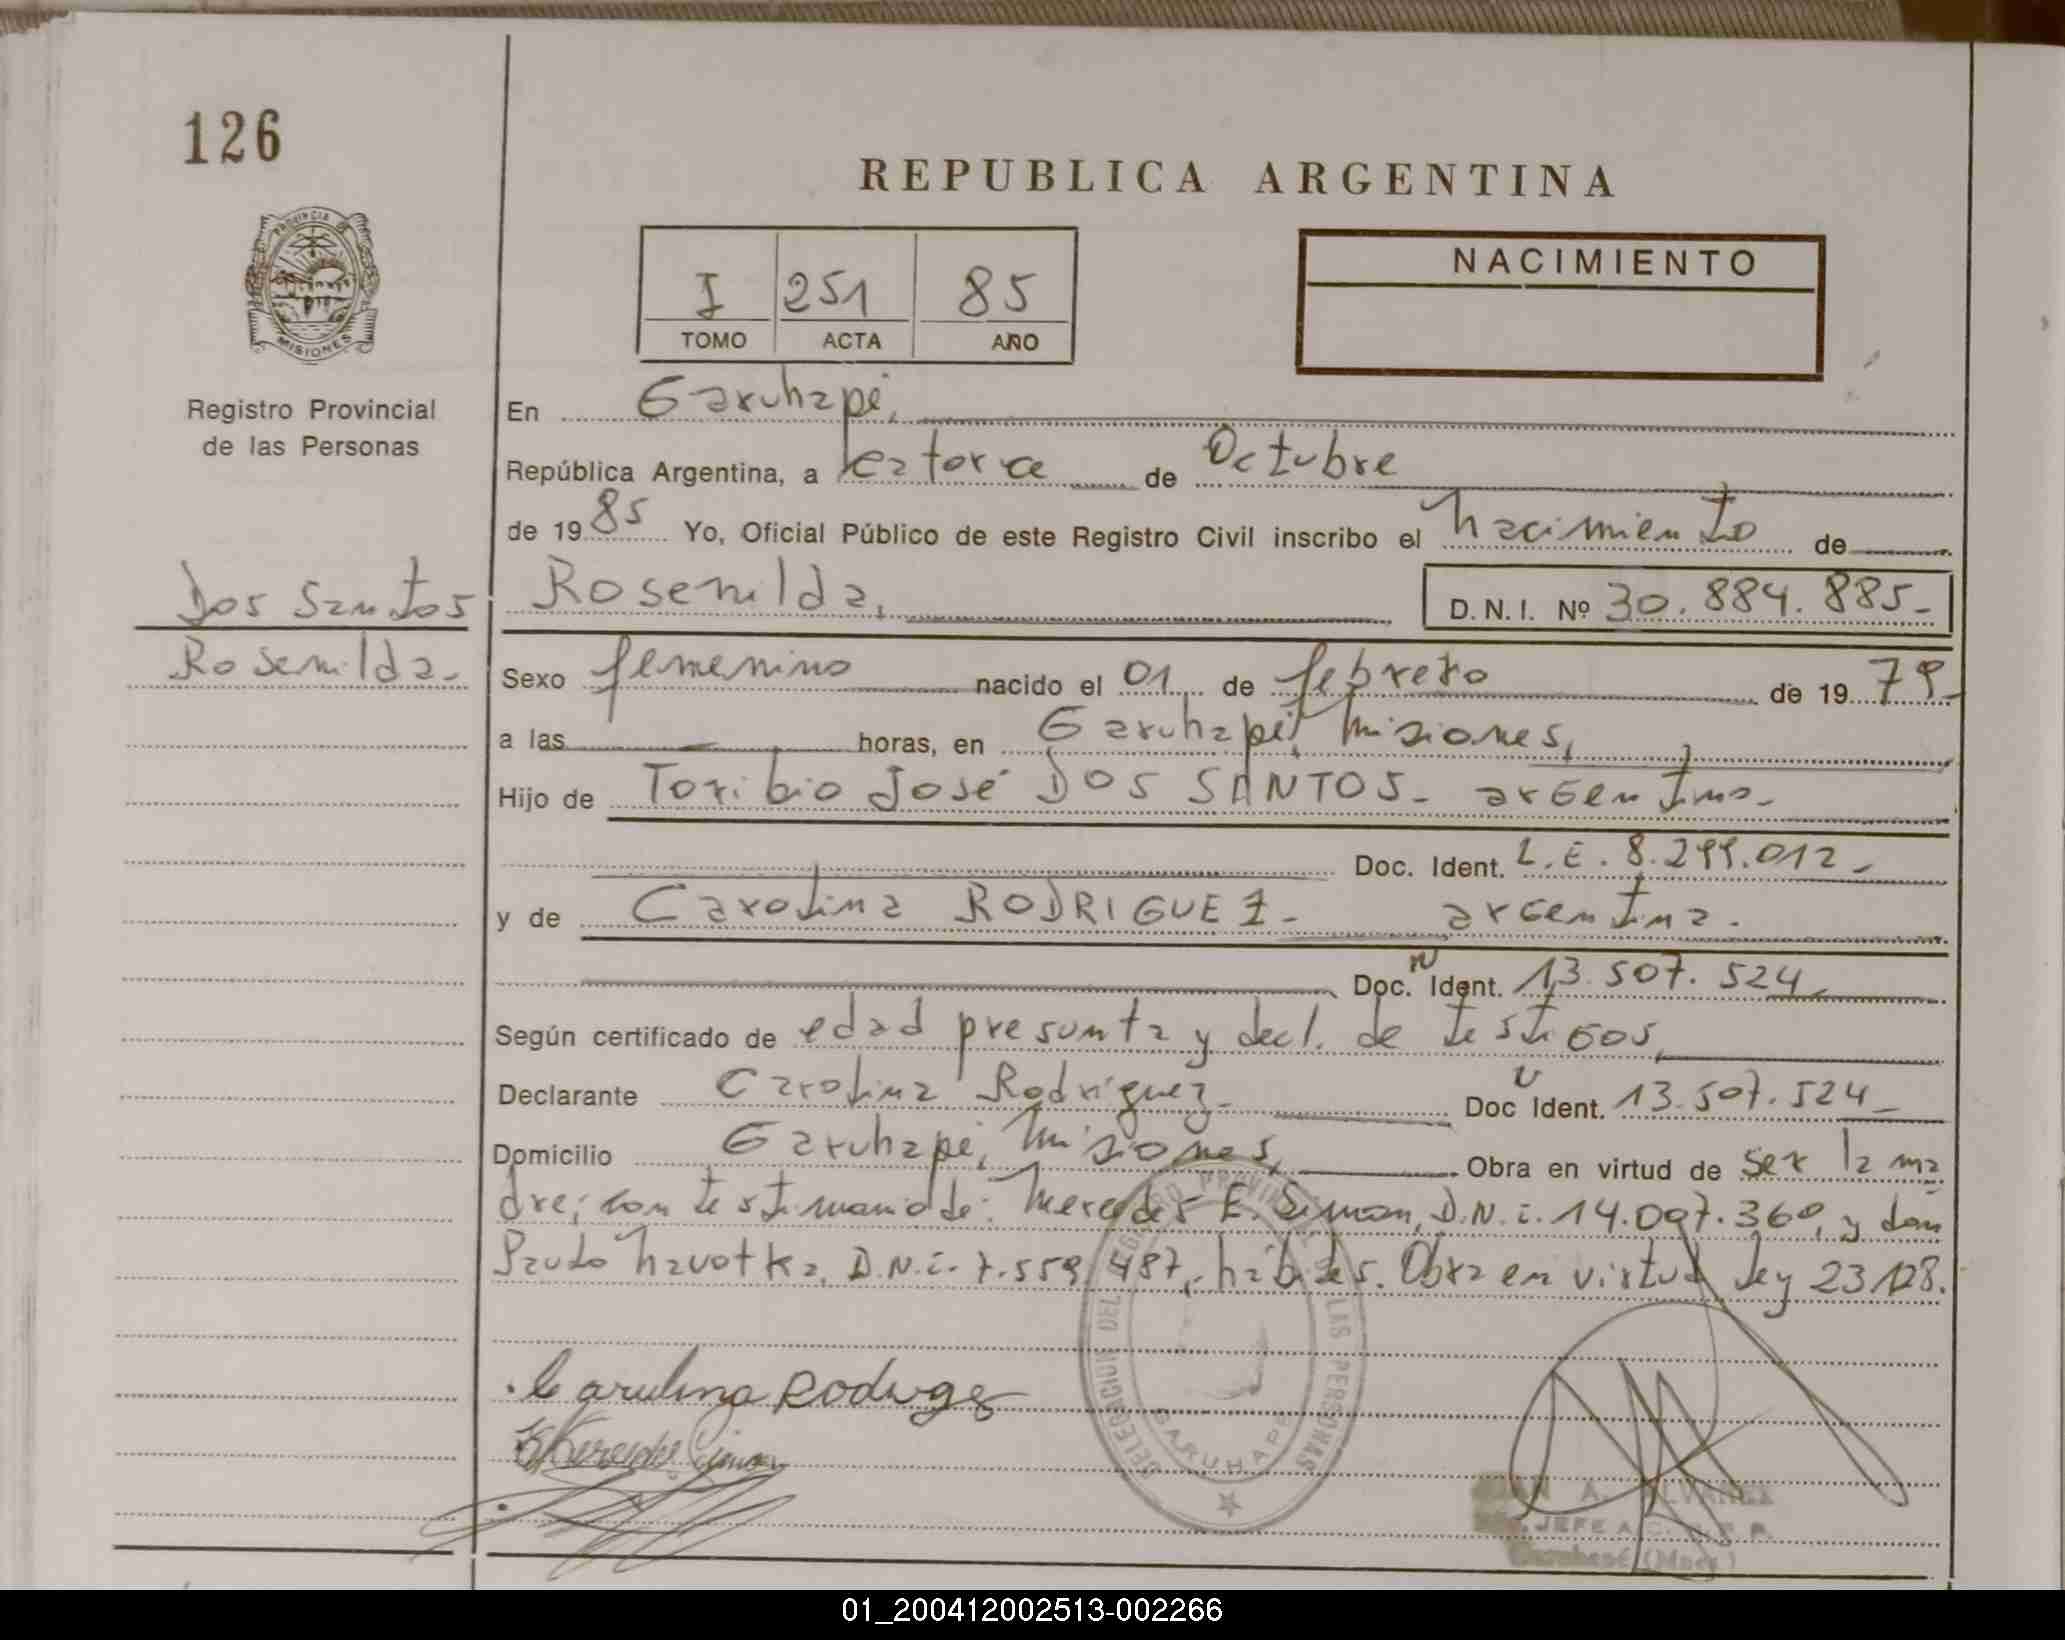 126
REPUBLICA ARGENTINA
PROVINCIA DE
MISIONES
I 251 85
TOMO ACTA AÑO
NACIMIENTO
Registro Provincial
de las Personas
En Garuhapé,
República Argentina, a catorce de Octubre
de 1985 Yo, Oficial Público de este Registro Civil inscribo el nacimiento de
Dos Santos
Rosenilda.
Rosenilda, D.N.I. Nº 30.884.885-
Sexo femenino nacido el 01 de febrero de 1979-
a las — horas, en Garuhapé, Misiones,
Hijo de Toribio José DOS SANTOS- argentino-
Doc. Ident. L.E. 8.299.012-
y de Carolina RODRIGUEZ- argentina.
Doc. Ident. 13.507.524
Según certificado de edad presunta y decl. de testigos,
Declarante Carolina Rodríguez- Doc Ident. 13.507.524-
Domicilio Garuhapé, Misiones, Obra en virtud de ser la ma
dre; con testimonio de: Mercedes E. Simon, D.N.i. 14.097.360, y don
Paulo D.N.i. 7.559.487, hábiles. Obra en virtud Ley 23.128.
Carulina Rodrigez
DELEGACION DEL REGISTRO PROVINCIAL DE LAS PERSONAS
GARUHAPE
JUAN A. ALVAREZ
JEFE
Garuhapé (Mnes)
01_200412002513-002266